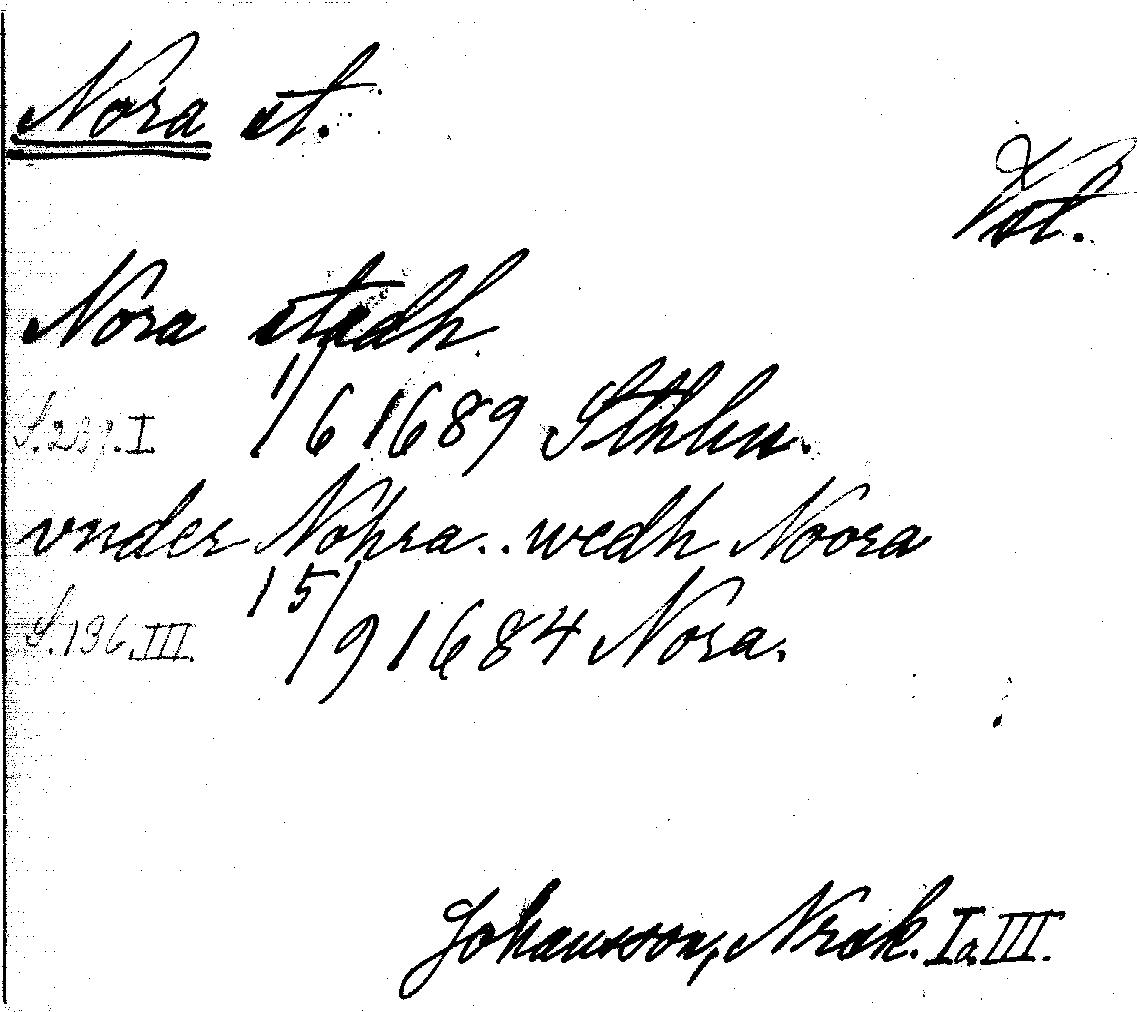 Nora st.
Vst.
Nora stadh
S.239.I 1/6 1689 Sthlm.
vnder Nohra.. wedh Noora
S.196.III. 15/9 1684 Nora.
Johansson, Nrsk. I a. III.